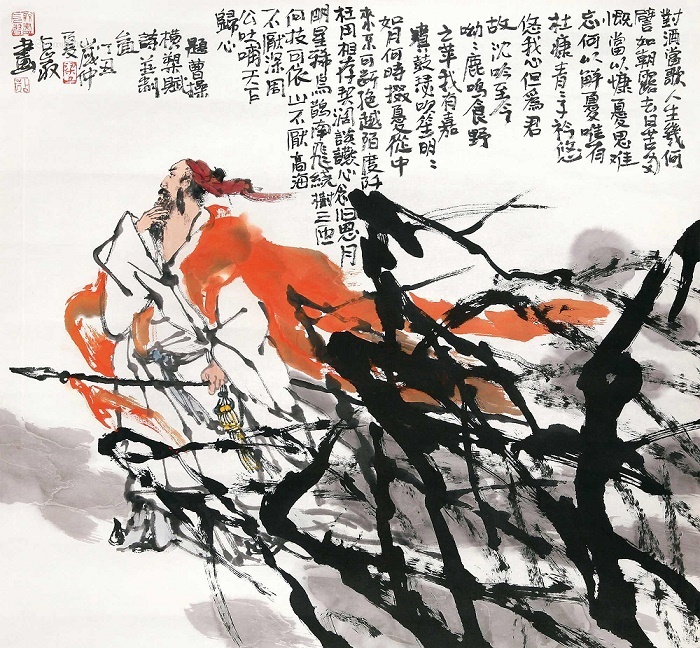 對酒當歌人生幾何
譬如朝露去日苦多
慨當以慷憂思難
忘何以解憂唯有
杜康青〻子衿悠
悠我心但爲君
故沈吟至今
呦〻鹿鳴食野
之苹我有嘉
賓鼓瑟吹笙明〻
如月何時掇憂從中
來不可斷絕越陌度阡
枉用相存契闊談讌心念旧恩月
明星稀烏鵲南飛繞樹三匝
何枝可依山不厭高海
不厭深周
公吐哺天下
歸心
題曹操
橫槊賦
詩并制
丁丑
歲仲
夏
畫